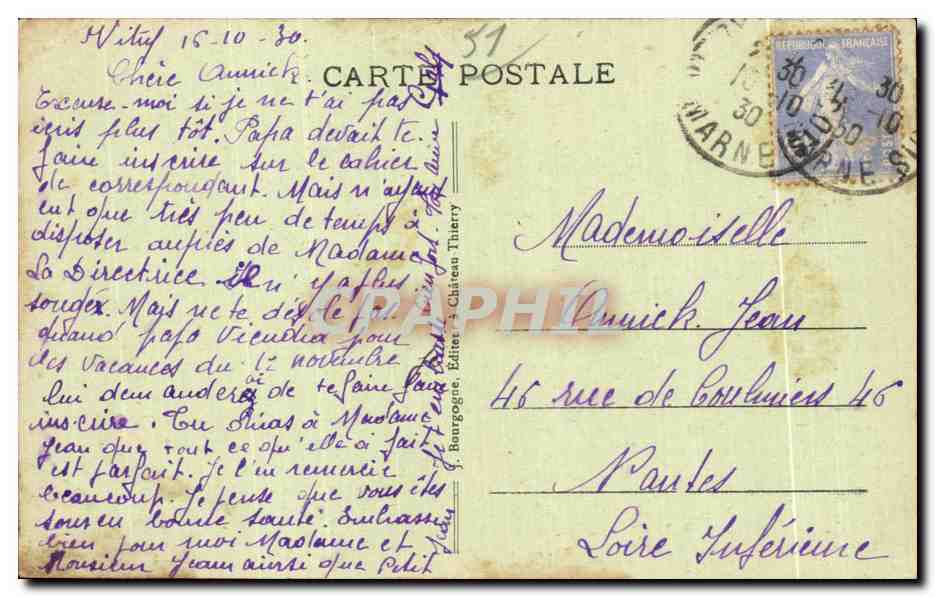 16-10-30.
51
Chère Annick.
CARTE POSTALE
REPUBLIQUE FRANÇAISE
MARNE
30
10
30
MARNE
Excuse-moi si je ne t'ai pas
écris plus tôt. Papa devait te
faire inscrire sur le cahier
de correspondant. Mais n'ayant
ent que très peu de temps à
disposer auprès de Madame
La Directrice il n'y a plus
songéx. Mais ne te désole pas
quand papa viendra pour
les vacances du 1er novembre
lui demanderai de te faire
inscrire. Tu diras à Madame
Jean que tout ce qu'elle a fait
est parfait. Je l'en remercie
beaucoup. Je pense que vous êtes
en bonne santé. Embrasse
bien pour moi Madame et
Monsieur Jean ainsi que Petit
Jean
J. Bourgogne, Editeur à Château Thierry
CARAPHIL
Mademoiselle
Annick Jean
46 rue de Coulmiers 46
Nantes
Loire Inférieure